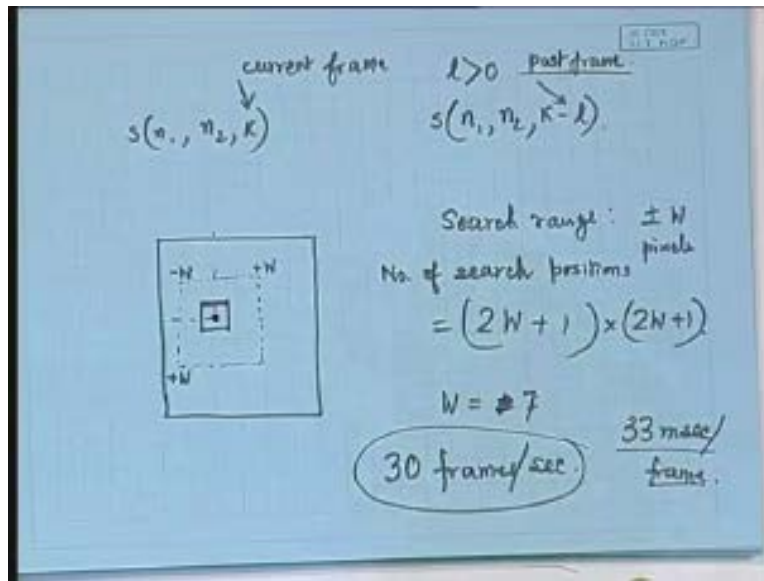 current frame
l>0 past frame
s(n₁, n₂, k)
s(n₁, n₂, k-l).
Search range: ± W
pixels
No. of search positions
= (2W + 1) × (2W+1)
-W +W
+W
W = 7
30 frames/sec.
33 msec/
frame.